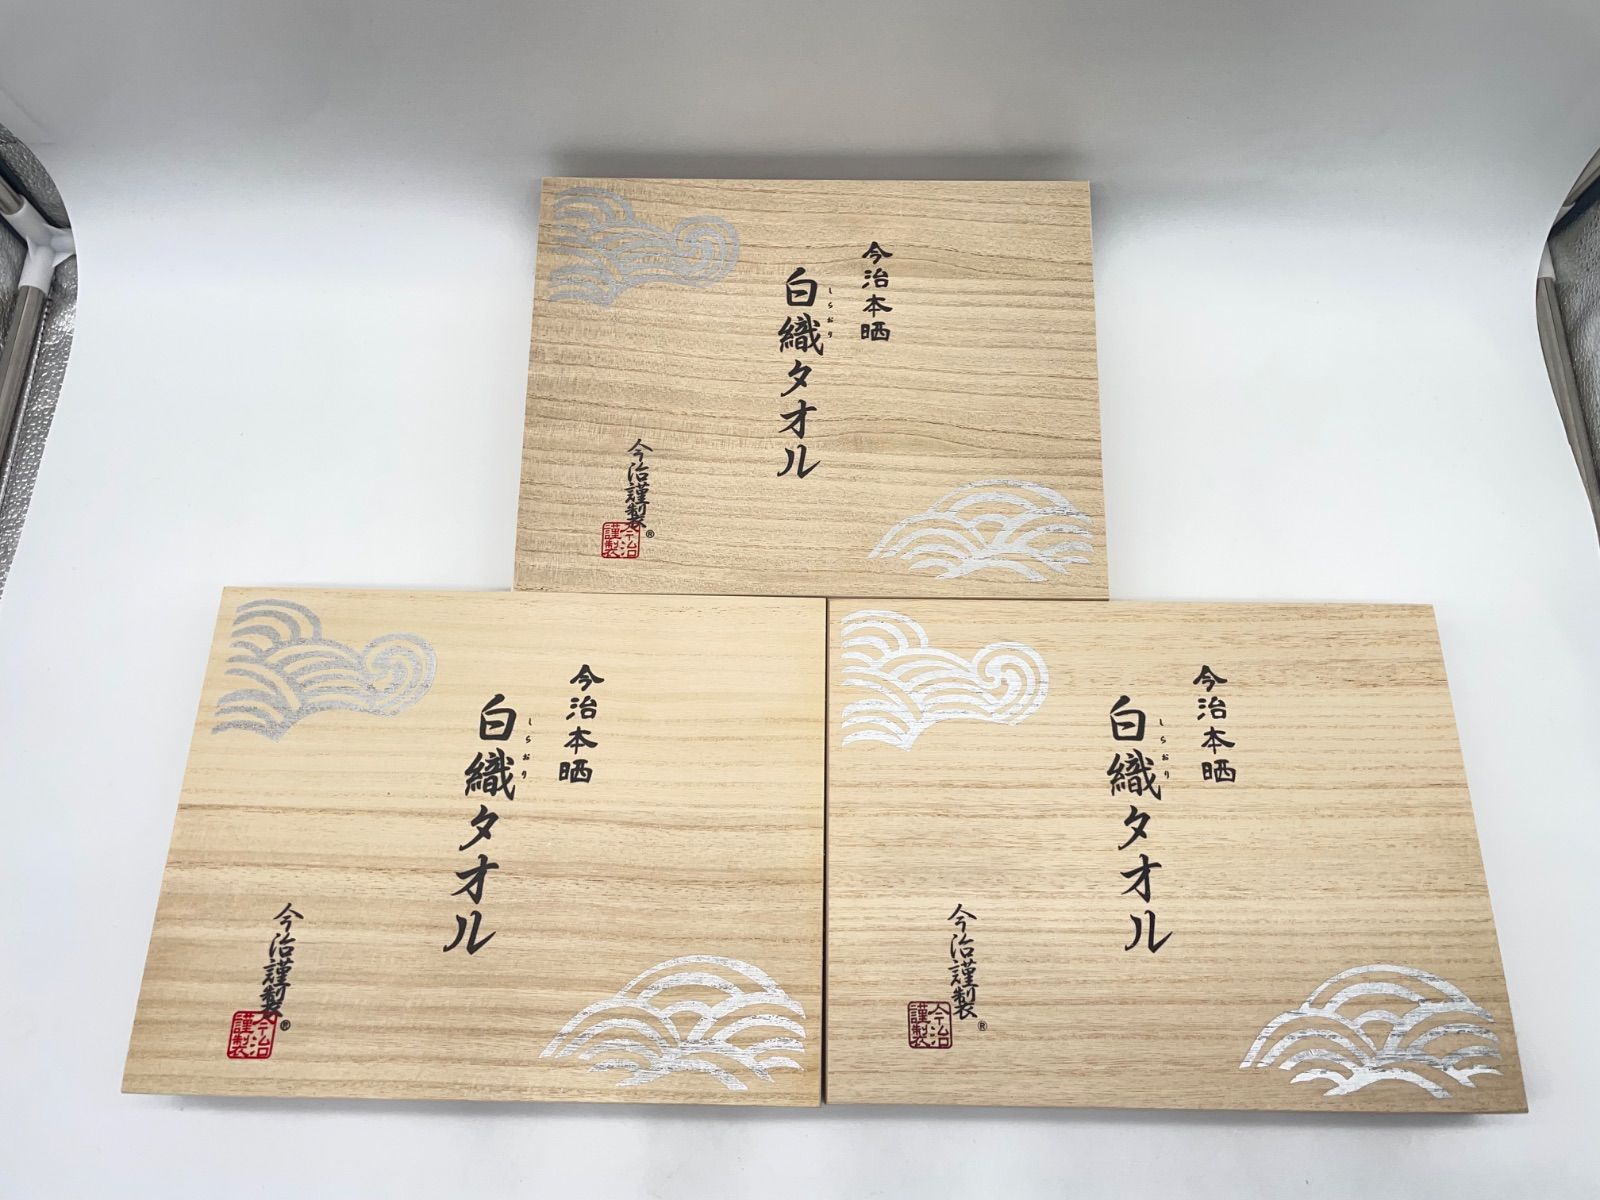 今治本晒
白織タオル
しらおり
今治謹製
®
今治
謹製
今治本晒
白織タオル
しらおり
今治謹製
®
今治
謹製
今治本晒
白織タオル
しらおり
今治謹製
®
今治
謹製